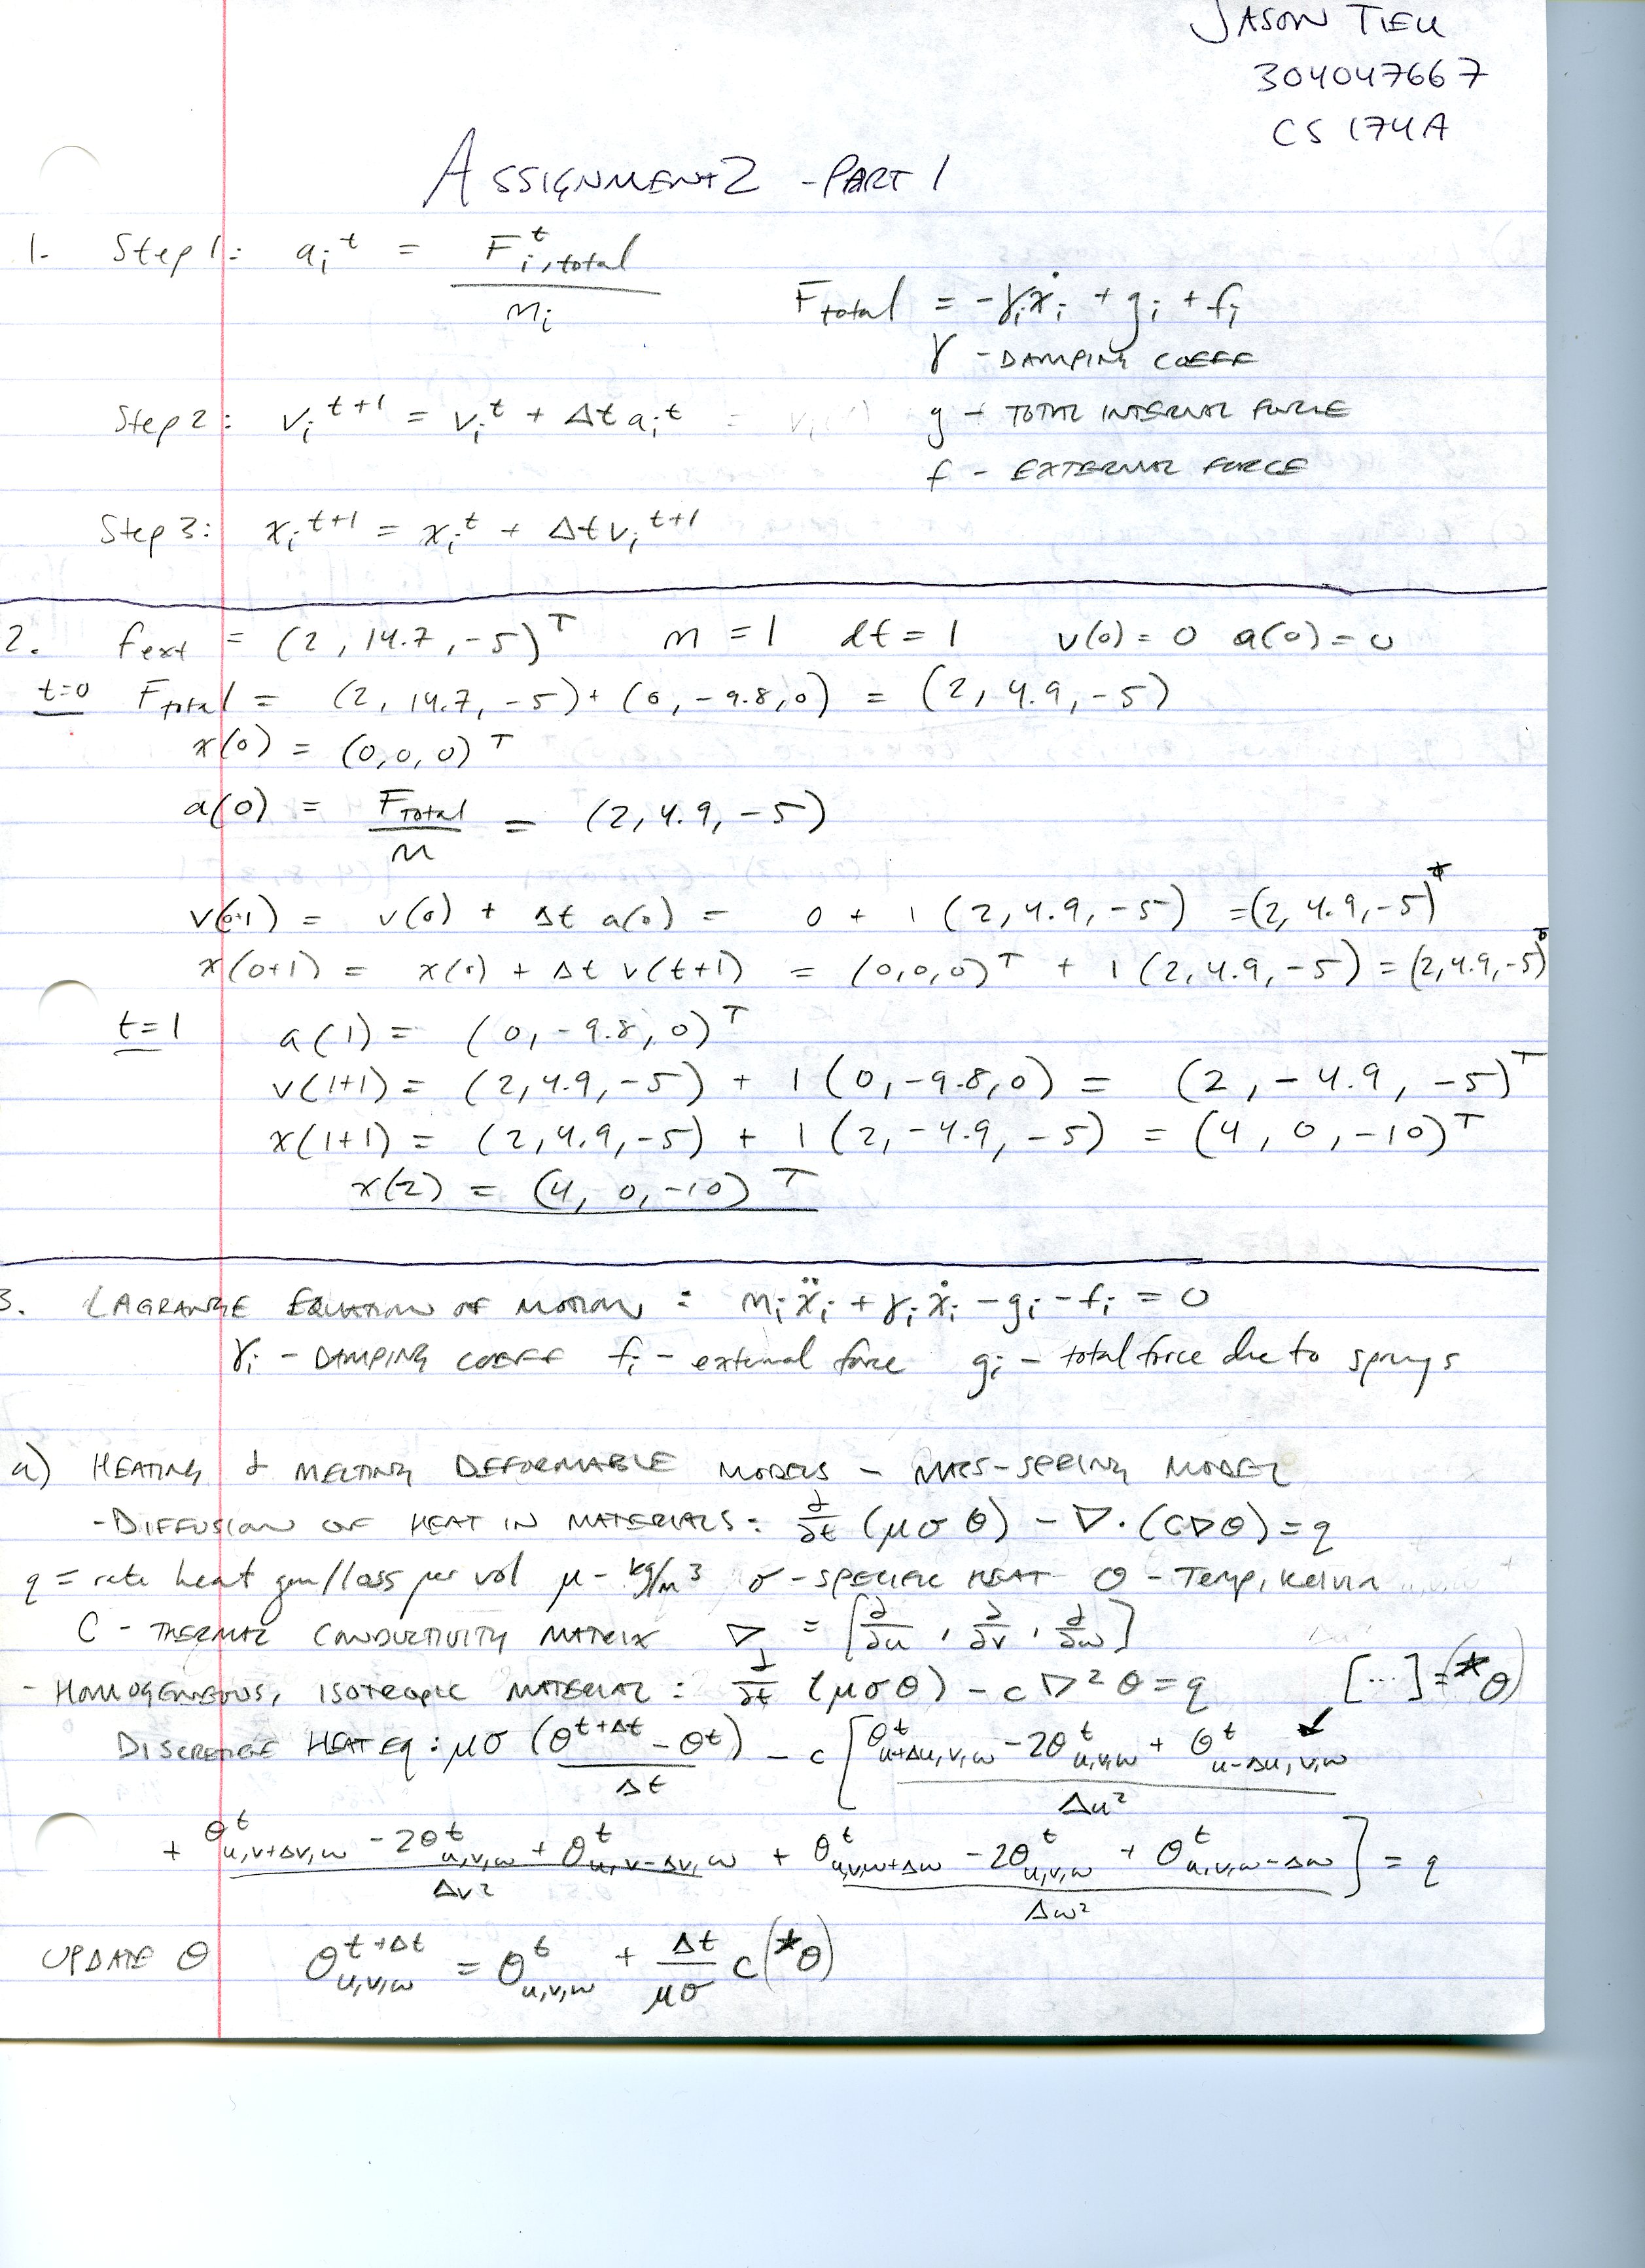 JASON TIEU
304047667
CS 174A
ASSIGNMENT 2 - PART 1
1. Step 1: aᵢᵗ = Fᵗᵢ,total / mᵢ
Ftotal = -γᵢẋᵢ + gᵢ + fᵢ
γ - DAMPING COEFF
Step 2: vᵢᵗ⁺¹ = vᵢᵗ + Δt aᵢᵗ
g - TOTAL INTERNAL FORCE
f - EXTERNAL FORCE
Step 3: xᵢᵗ⁺¹ = xᵢᵗ + Δt vᵢᵗ⁺¹
2. fext = (2, 14.7, -5)ᵀ m = 1 dt = 1 v(0) = 0 a(0) = 0
t=0 Ftotal = (2, 14.7, -5) + (0, -9.8, 0) = (2, 4.9, -5)
x(0) = (0, 0, 0)ᵀ
a(0) = FTotal / m = (2, 4.9, -5)
v(0+1) = v(0) + Δt a(0) = 0 + 1 (2, 4.9, -5) = (2, 4.9, -5)ᵀ
x(0+1) = x(0) + Δt v(t+1) = (0,0,0)ᵀ + 1 (2, 4.9, -5) = (2, 4.9, -5)ᵀ
t=1 a(1) = (0, -9.8, 0)ᵀ
v(1+1) = (2, 4.9, -5) + 1 (0, -9.8, 0) = (2, -4.9, -5)ᵀ
x(1+1) = (2, 4.9, -5) + 1 (2, -4.9, -5) = (4, 0, -10)ᵀ
x(2) = (4, 0, -10)ᵀ
3. LAGRANGE EQUATION OF MOTION: mᵢẍᵢ + γᵢẋᵢ - gᵢ - fᵢ = 0
γᵢ - DAMPING COEFF fᵢ - external force gᵢ - total force due to springs
a) HEATING & MELTING DEFORMABLE MODELS - MASS-SPRING MODEL
- DIFFUSION OF HEAT IN MATERIALS: ∂/∂t (μσθ) - ∇·(C∇θ) = q
q = rate heat gen/loss per vol μ - kg/m³ σ - SPECIFIC HEAT θ - Temp, Kelvin
C - THERMAL CONDUCTIVITY MATRIX ∇ = [∂/∂u, ∂/∂v, ∂/∂w]
- HOMOGENEOUS, ISOTROPIC MATERIAL: ∂/∂t (μσθ) - c∇²θ = q [...] = (*θ)
DISCRETIZE HEAT EQ: μσ (θᵗ⁺Δᵗ - θᵗ) / Δt - c [ (θᵗu+Δu,v,w - 2θᵗu,v,w + θᵗu-Δu,v,w) / Δu²
+ (θᵗu,v+Δv,w - 2θᵗu,v,w + θᵗu,v-Δv,w) / Δv² + (θᵗu,v,w+Δw - 2θᵗu,v,w + θᵗu,v,w-Δw) / Δw² ] = q
UPDATE θ θᵗ⁺Δᵗu,v,w = θᵗu,v,w + Δt/μσ c (*θ)